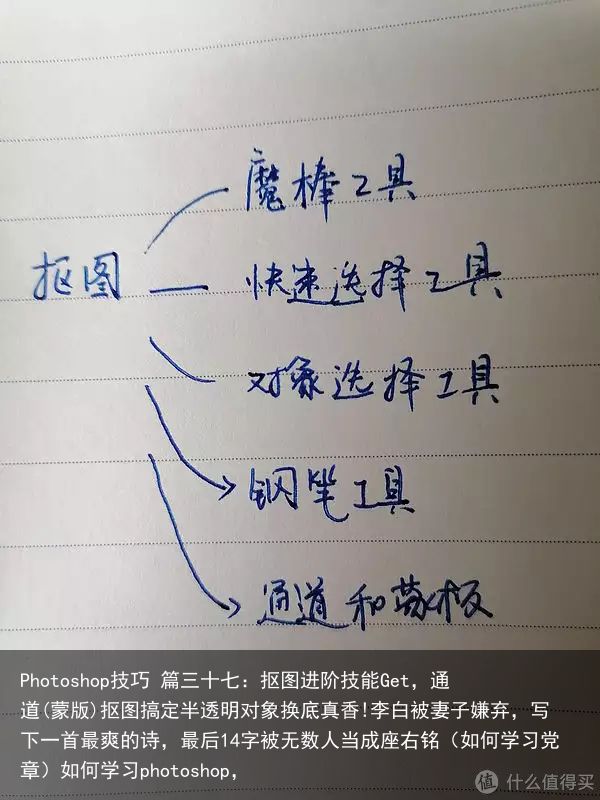 魔棒工具
抠图
快速选择工具
对象选择工具
钢笔工具
通道和蒙板
Photoshop技巧 篇三十七：抠图进阶技能Get，通
道(蒙版)抠图搞定半透明对象换底真香!李白被妻子嫌弃，写
下一首最爽的诗，最后14字被无数人当成座右铭（如何学习党
章）如何学习photoshop，
值 什么值得买